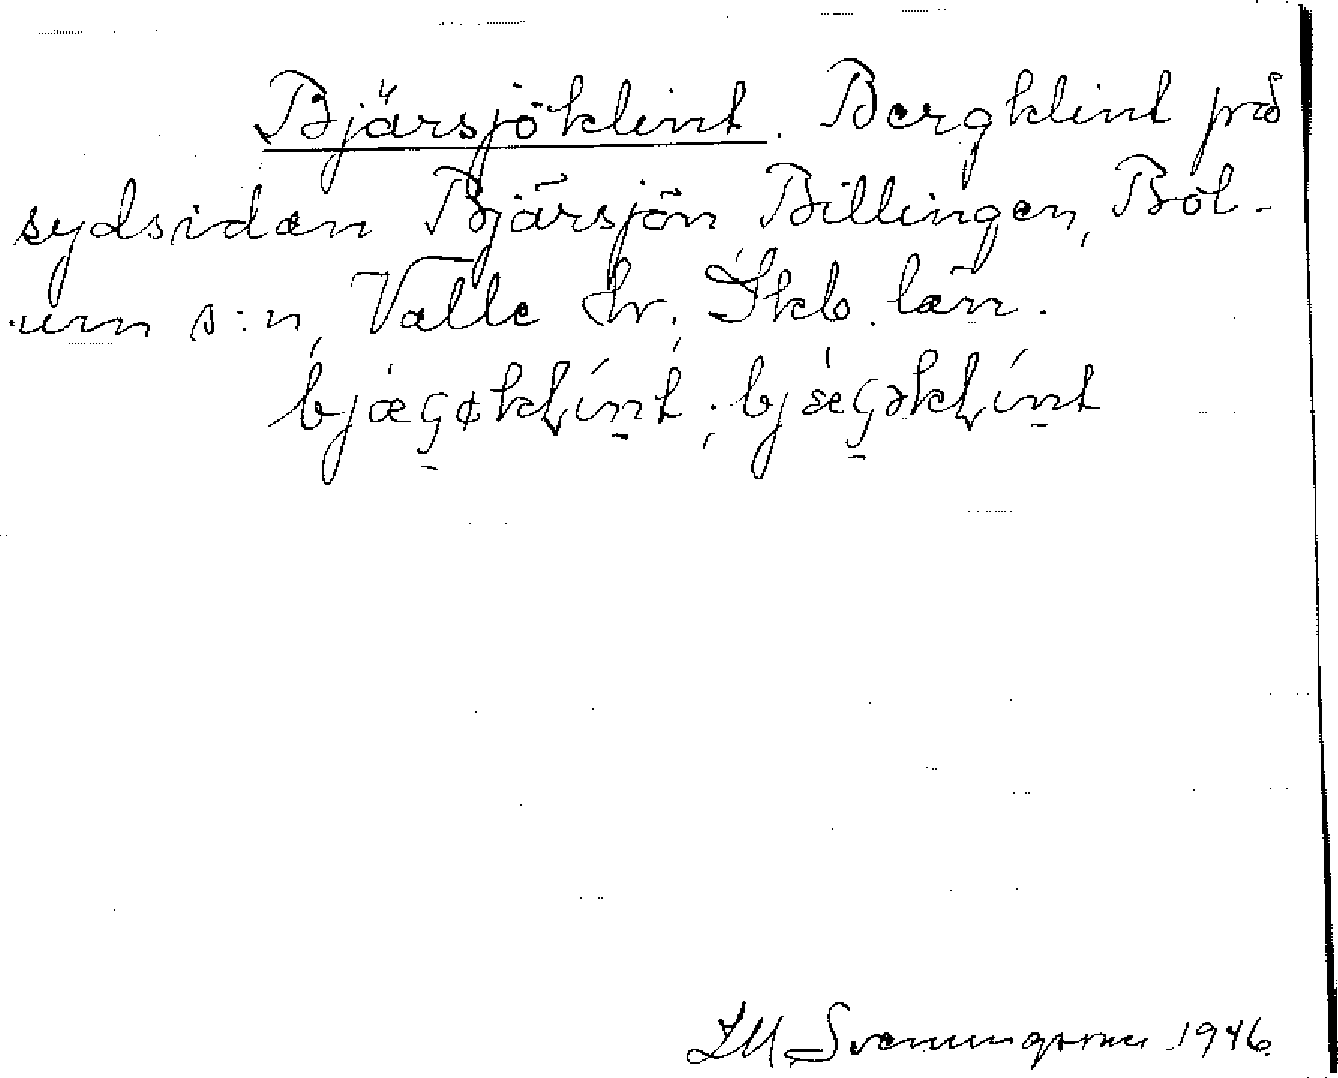 Bjärsjöklint. Bergklint på
sydsidan Bjärsjön, Billingen, Böl-
um s:n, Valle hr, Skb. län.
bjæçøkḷínt; bjǽçəkḷínt
Svenungsson 1946